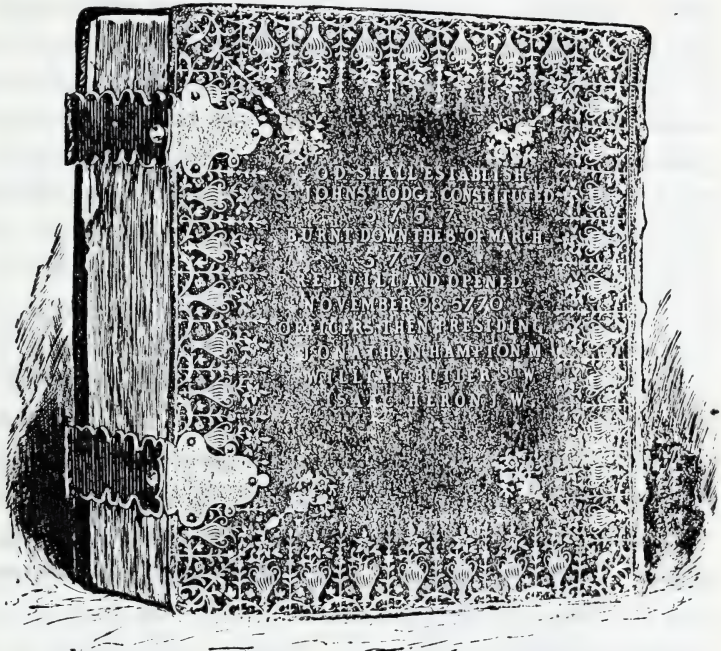 GOD SHALL ESTABLISH
JOHNS LODGE CONSTITUTED
5757
BURNT DOWN THE 8 OF MARCH
5770
REBUILT AND OPENED
NOVEMBER 28 5770
OFFICERS THEN PRESIDING
JONATHAN HAMPTON M
WILLIAM BUTLER S W
ISAAC HERON J W